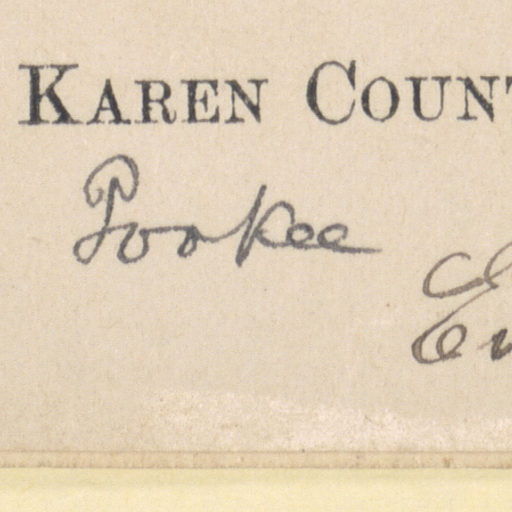 KAREN COUNT
Pookee